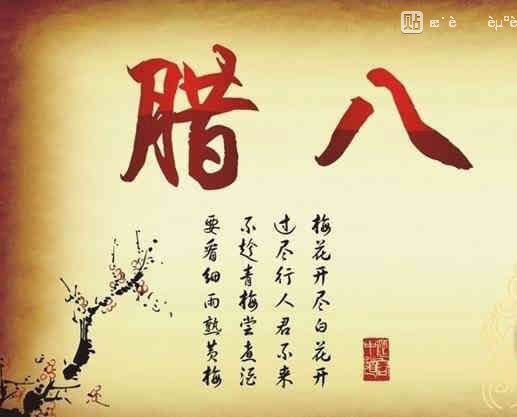 贴
腊八
梅花开尽白花开
过尽行人君不来
不趁青梅尝煮酒
要看细雨熟黄梅